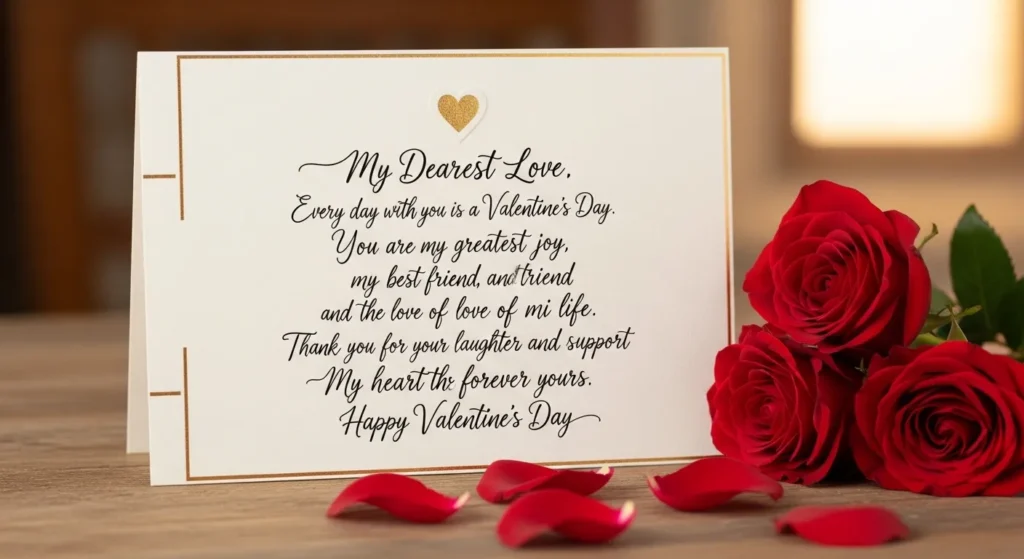 My Dearest Love,
Every day with you is a Valentine's Day.
You are my greatest joy,
my best friend, and triend
and the love of love of mi life.
Thank you for your laughter and support
My heart the forever yours.
Happy Valentine's Day